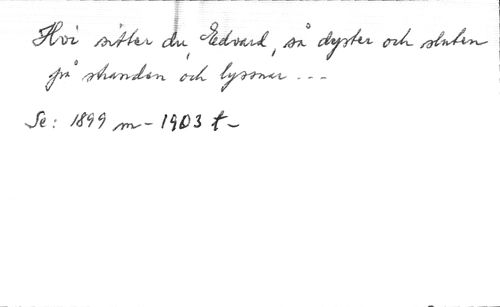 Hvi sitter du, Edvard, så dyster och sluten
på stranden och lyssnar ...
Se: 1899 m - 1903 t -